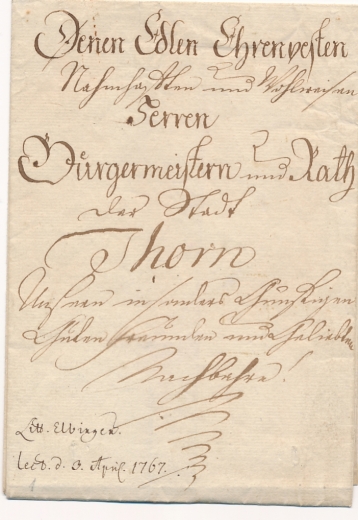 Denen Edlen Ehrenvesten
Nahmhafften und Wohlweisen
Herren
Bürgermeistern und Rath
der Stadt
Thorn
Unsern insonders Gunstigen
Guten Freunden und Geliebten
Nachbahren!
Litt. Elbingen.
lect. d. 3. April. 1767.